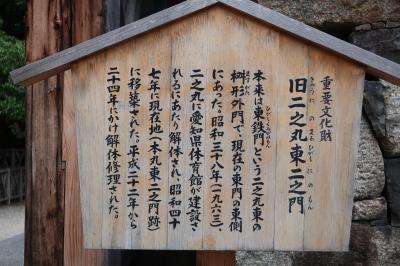 重要文化財
旧二之丸東二之門
きゅうにのまるひがしにのもん
本来は東鉄門という二之丸東の
ひがしくろがねもん
枡形外門で、現在の東門の東側
ますがた
にあった。昭和三十八年(一九六三)
二之丸に愛知県体育館が建設さ
れるにあたり解体され、昭和四十
七年に現在地(本丸東二之門跡)
に移築された。平成二十二年から
二十四年にかけ解体修理された。